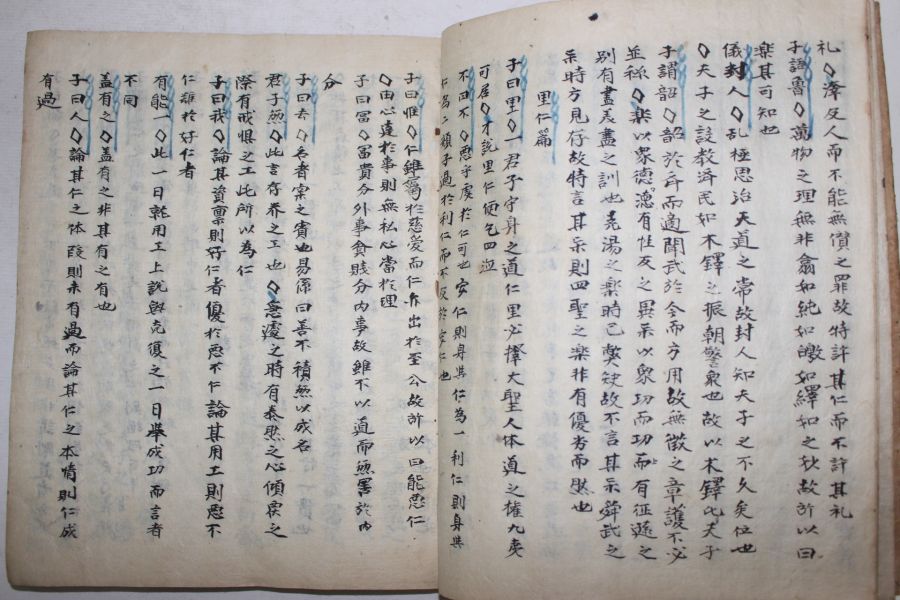 礼◇澤及人而不能無僣之罪故特許其仁而不許其礼
子語魯◇萬物之理無非翕如純如皦如繹如之秋故許以曰
樂其可知也
儀封人◇乱極思治天道之常故封人知夫子之不久矣位也
◇夫子之設教濟民如木鐸之振朝警衆也故以木鐸比夫子
子謂韶◇韶於斉而適聞武於今而方用故無徵之章護不必
並称◇樂以象德德有性反之異示以象功而功有征遜之
別有盡美盡之訓也堯湯之樂時已弊缺故不言其示舜武之
樂時方見存故特言其示則四聖之樂非有優劣而然也
里仁篇
子曰里◇一君子守身之道仁里必擇大聖人体道之權九夷
可居◇才說里仁便乞四泣
不曰不◇惡乎處於仁可也安仁則身與仁為一利仁則身與
仁為二顔子過於利仁而不及於安仁也
子曰惟◇仁雖屬於慈愛而仁亦出於至公故許以曰能惡仁
◇由心達於事則無私心當於理
子曰富◇冨貴分外事貧賤分内事故雖不以道而煞署於内
分
子曰去◇名者宲之賓也易係曰善不積無以成名
君子無◇此言存养之工也◇急遽之時有泰然之心傾宲之
際有戒懼之工此所以為仁
子曰我◇論其資禀則好仁者優於惡不仁論其用工則惡不
仁誰於好仁者
有能一◇此一日就用工上說與克復之一日舉成功而言者
不同
盖有之◇盖有之非其有之有也
子曰人◇論其仁之体段則未有過而論其仁之本情則仁成
有過